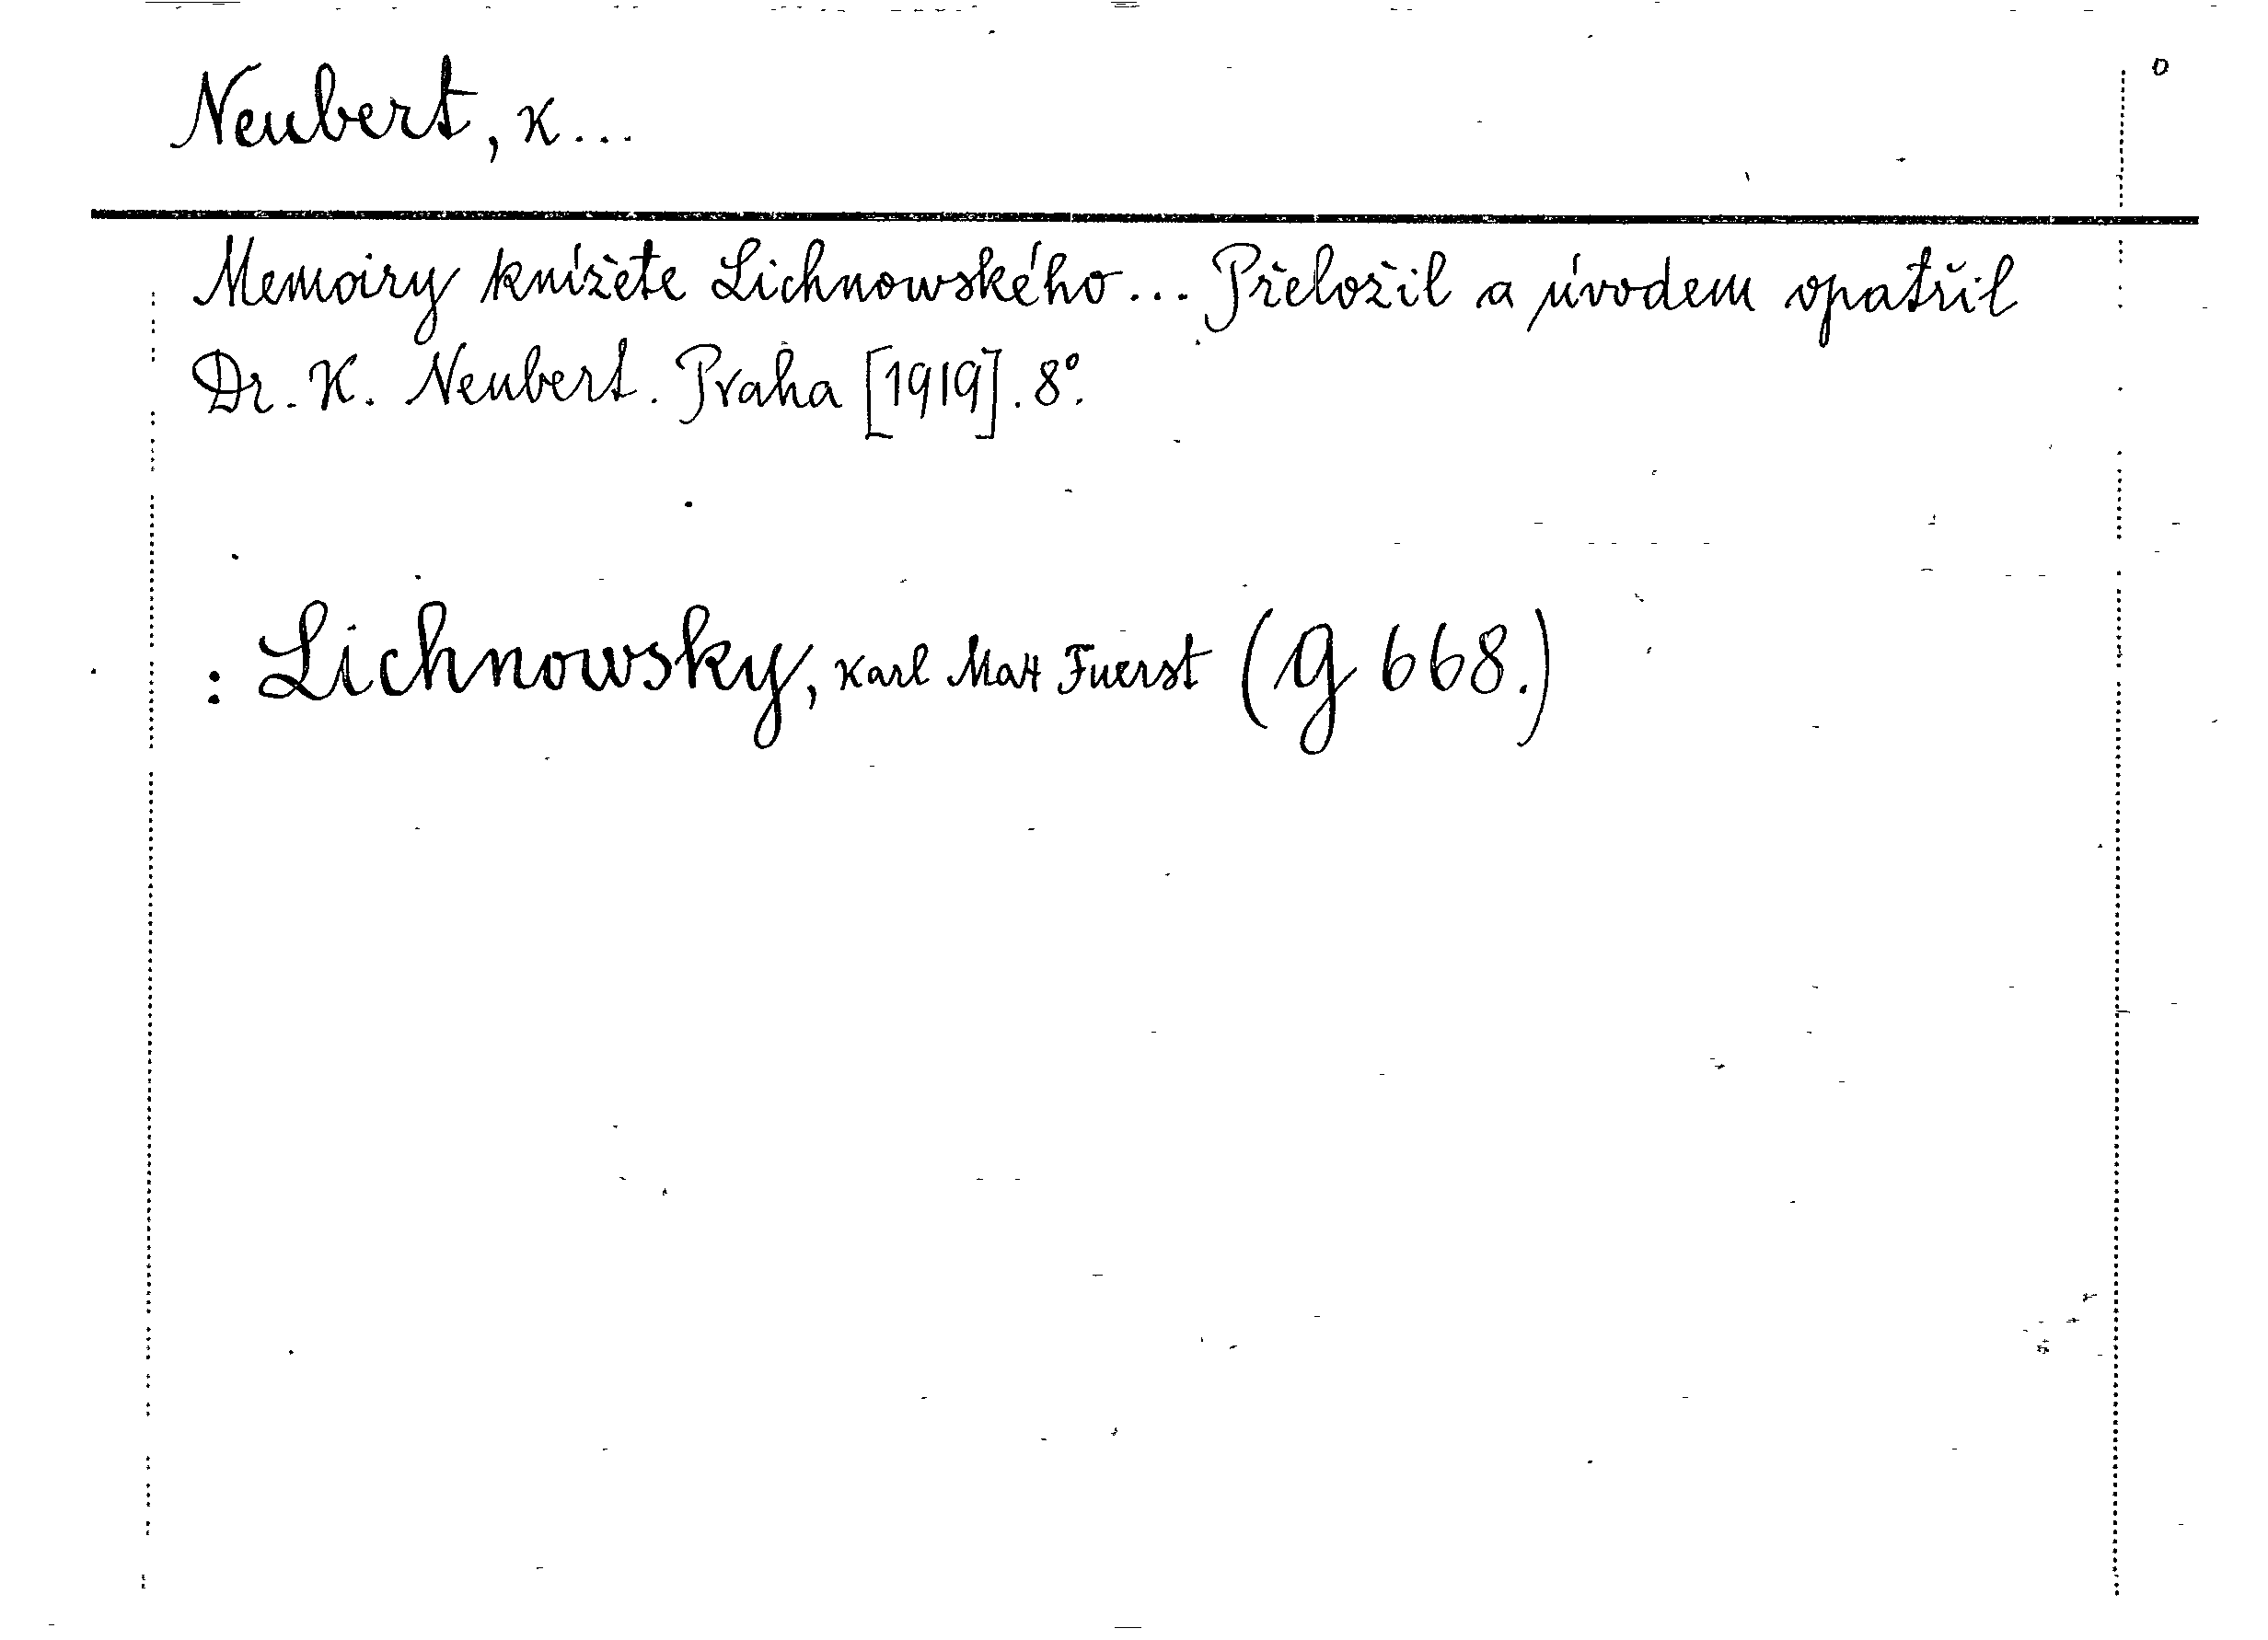 Neubert, K...
o
Memoiry knížete Lichnowského... Přeložil a úvodem opatřil
Dr. K. Neubert. Praha [1919]. 8°.
: Lichnowsky, Karl Max Fuerst (G 668.)